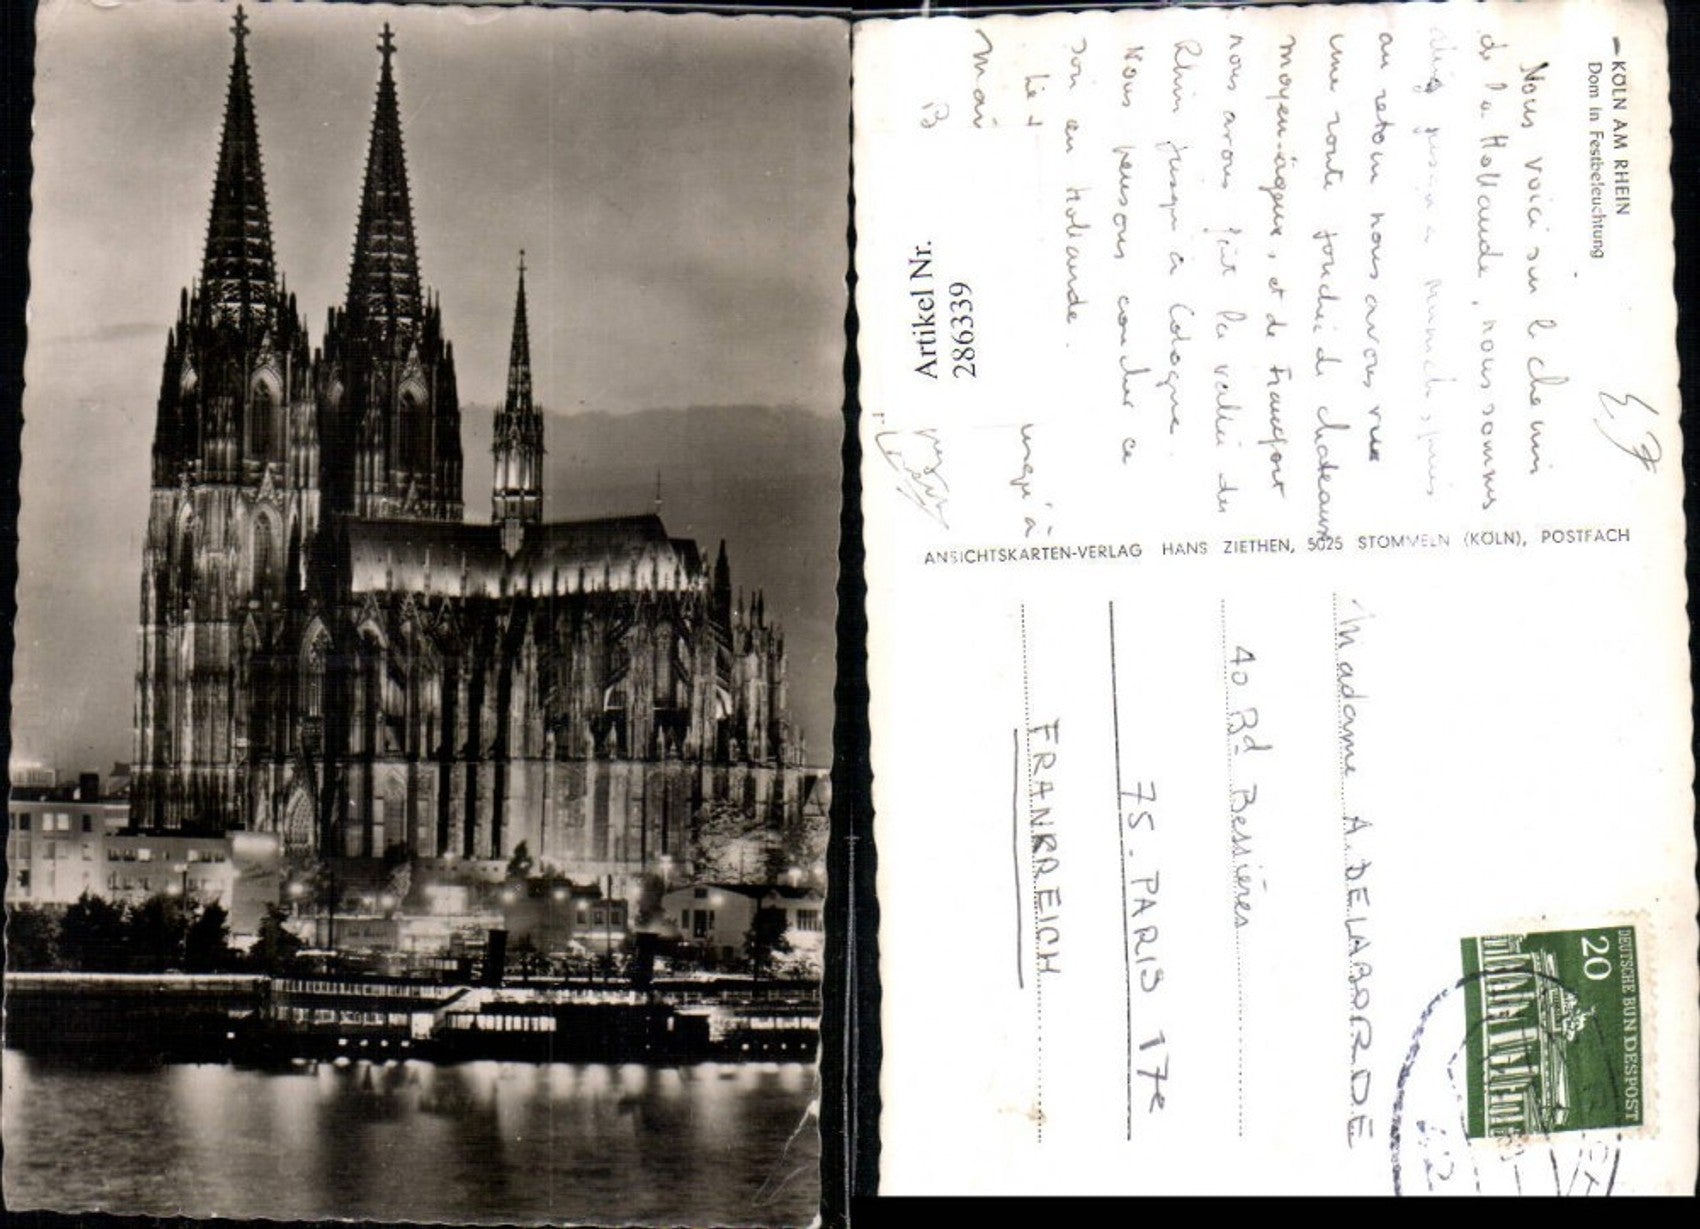 – KÖLN AM RHEIN
Dom in Festbeleuchtung
Nous voici sur le chemin
de la Hollande, nous sommes
jusqu'à Munich, puis
au retour nous avons vu
une route bordée de chateaux
moyen-ageux, et de Francfort
nous avons fait la vallée du
Rhin jusqu'à Cologne.
Nous pensons coucher ce
soir en Hollande.
jusqu'à
Artikel Nr.
286339
ANSICHTSKARTEN-VERLAG HANS ZIETHEN, 5025 STOMMELN (KÖLN), POSTFACH
DEUTSCHE BUNDESPOST
20
Madame A. DELABORDE
40 Bd Bessières
75. PARIS 17e
FRANKREICH